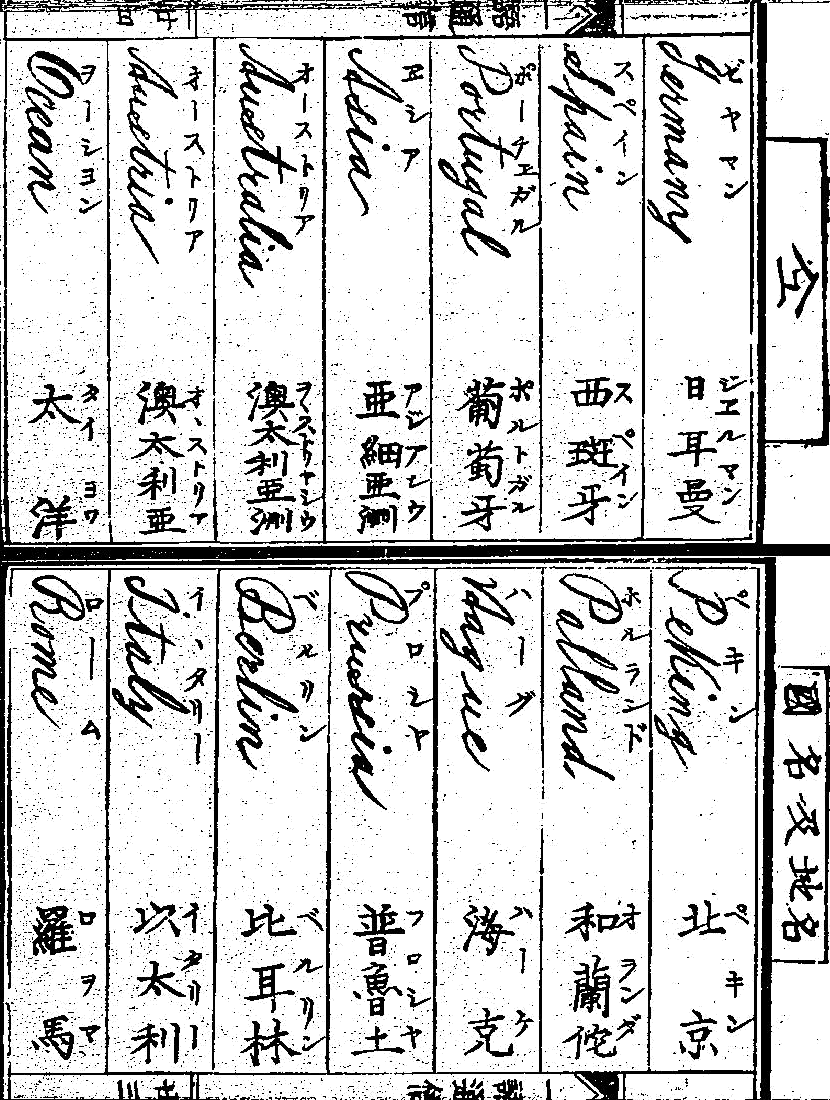 仝
Germany
ゼヤマン
日耳曼
ジエルマン
Spain
スペイン
西斑牙
スペイン
Portugal
ポーチユガル
葡萄牙
ポルトガル
Asia
エシア
亜細亜洲
アジアシウ
Australia
オーストリア
澳太利亜洲
ヲヽストリヤシウ
Austria
オーストリア
澳太利亜
オヽストリア
Ocean
ヲーシヨン
太洋
タイヨウ
廿四
國名及地名
Peking
ペキン
北京
ペキン
Palland
ホルランド
和蘭佗
オランダ
Hague
ハーグ
海克
ハーケ
Prussia
プロシヤ
普魯士
フロシヤ
Berlin
ベルリン
比耳林
ベルリン
Italy
イヽタリー
以太利
イタリー
Rome
ローム
羅馬
ロヲマ
廿三